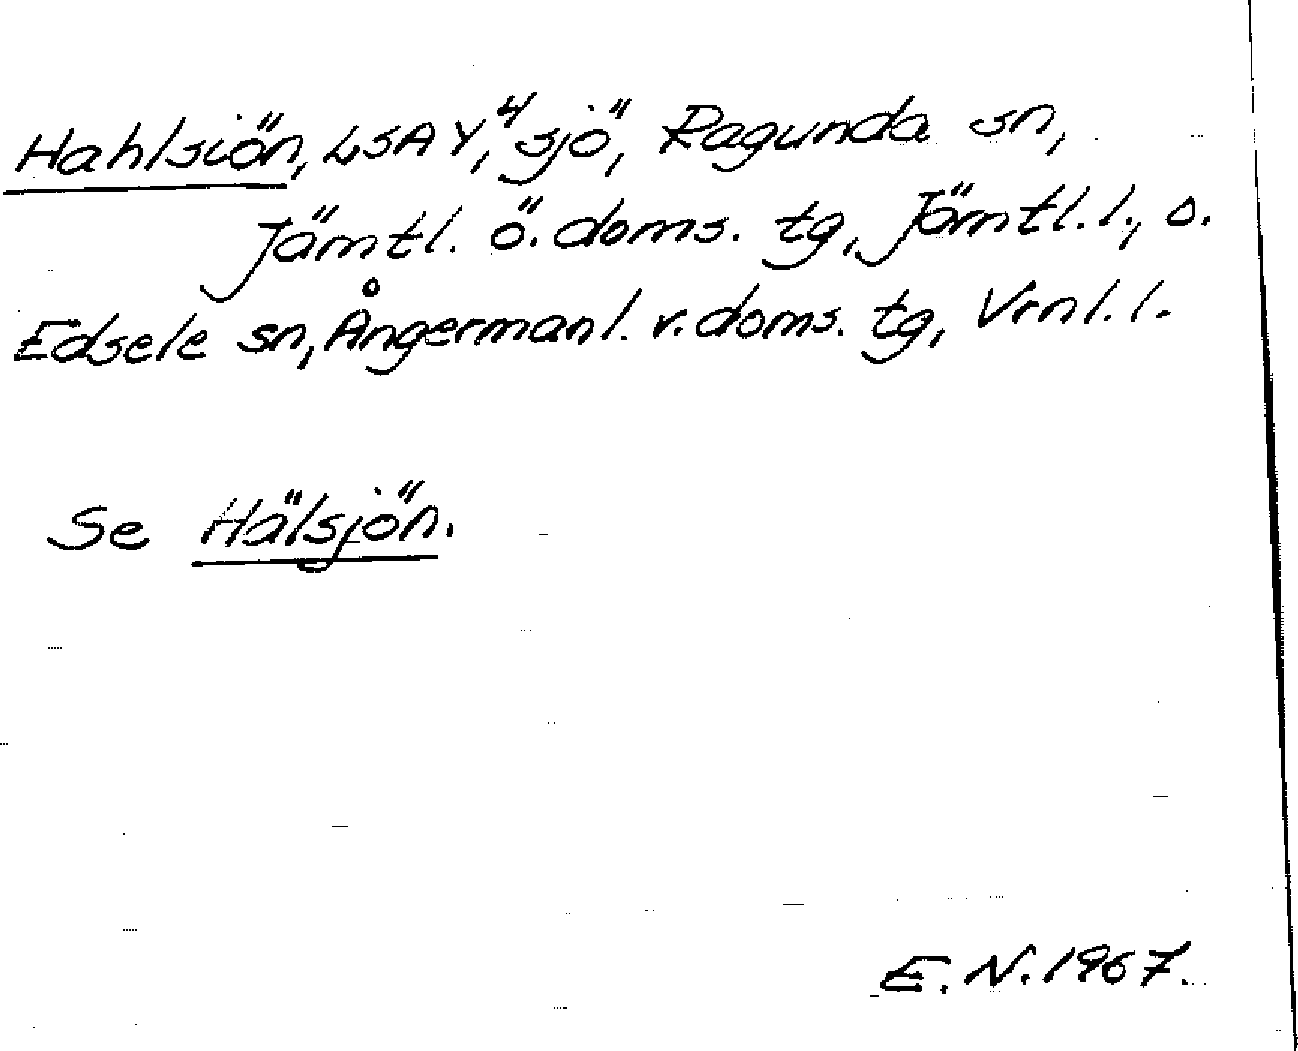 Hahlsiön, LSA Y,⁴ sjö, Ragunda sn,
Jämtl. ö. doms. tg, Jämtl. l., o.
Edsele sn, Ångermanl. v. doms. tg, Vrnl. l.
Se Hälsjön.
E. N. 1967.